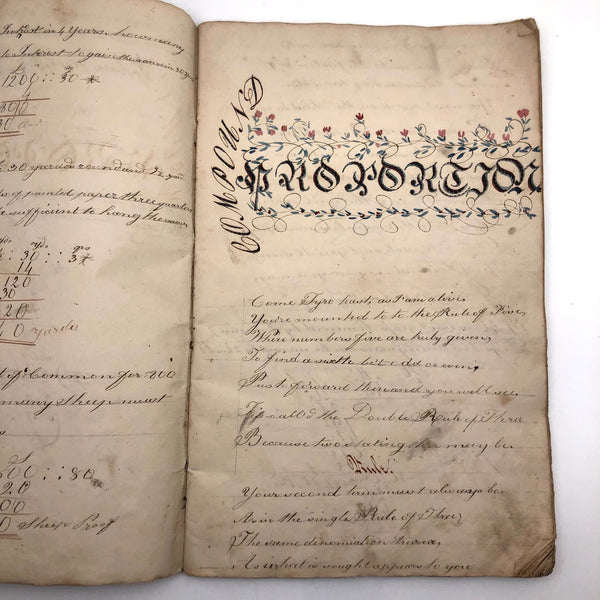 Interest in 4 Years how many
Interest to gain the same in
1200 :: 30
4
30
30 yards round and 2½ yard
of painted paper three quarters
sufficient to hang the same
yds yds qrs
: 30 : 3
14
120
30
20
yards
of Common for 200
many sheep must
800 :: 80
20
00
0 Sheep Proof
COMPOUND
PROPORTION
Come Tyro haste as I am alive
You're mounted to to the Rule of Five
Where numbers five are truly given
To find a sixth let odd or even,
Push forward then and you will see
Tis call'd the Double Rule of Three
Because two stating ther may be
Rule.
Your second term must always be
As in the single Rule of Three
The same denomination
As what is sought appears to you